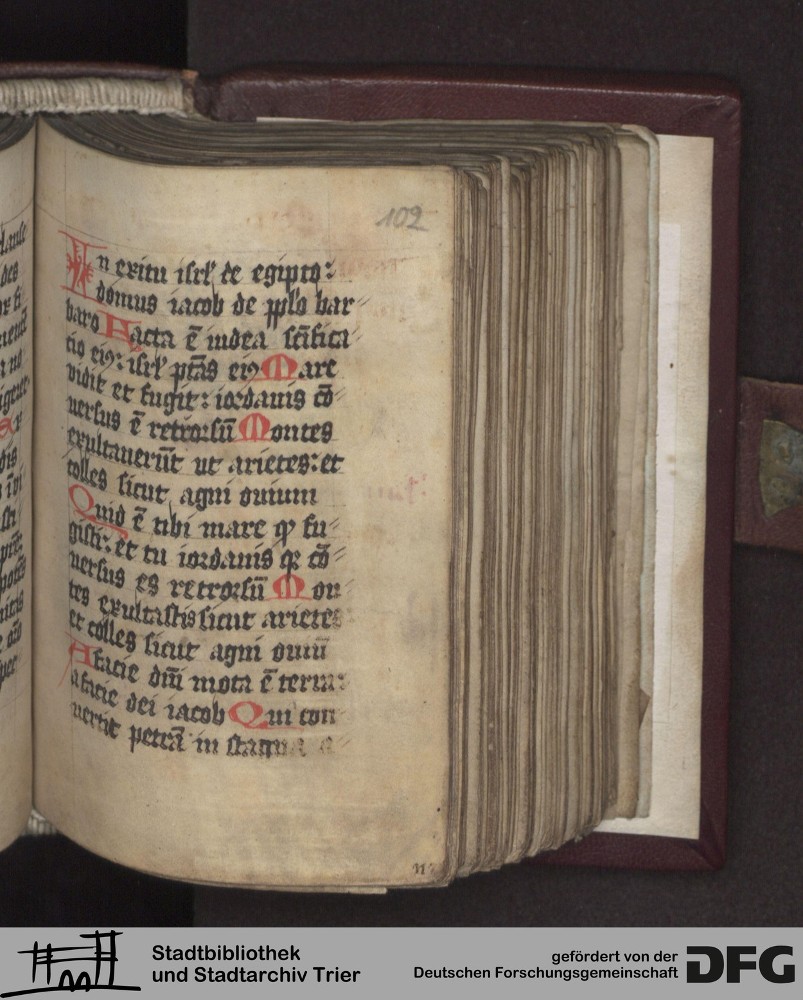 102
In exitu isrl' de egipto:
domus iacob de pplo bar
baro Facta ē iudea scīfica
cio ei9: isrl' ptās ei9 Mare
vidit et fugit: iordanis cō
uersus ē retrorsū Montes
exultauerūt ut arietes: et
colles sicut agni ouium
Quid ē tibi mare qꝫ fu
gisti: et tu iordanis qꝫ cō
uersus es retrorsū Mon
tes exultastis sicut arietes
et colles sicut agni ouiū
A facie dnī mota ē terra:
a facie dei iacob Qui con
uertit petrā in stagna
Stadtbibliothek
und Stadtarchiv Trier
gefördert von der
Deutschen Forschungsgemeinschaft
DFG